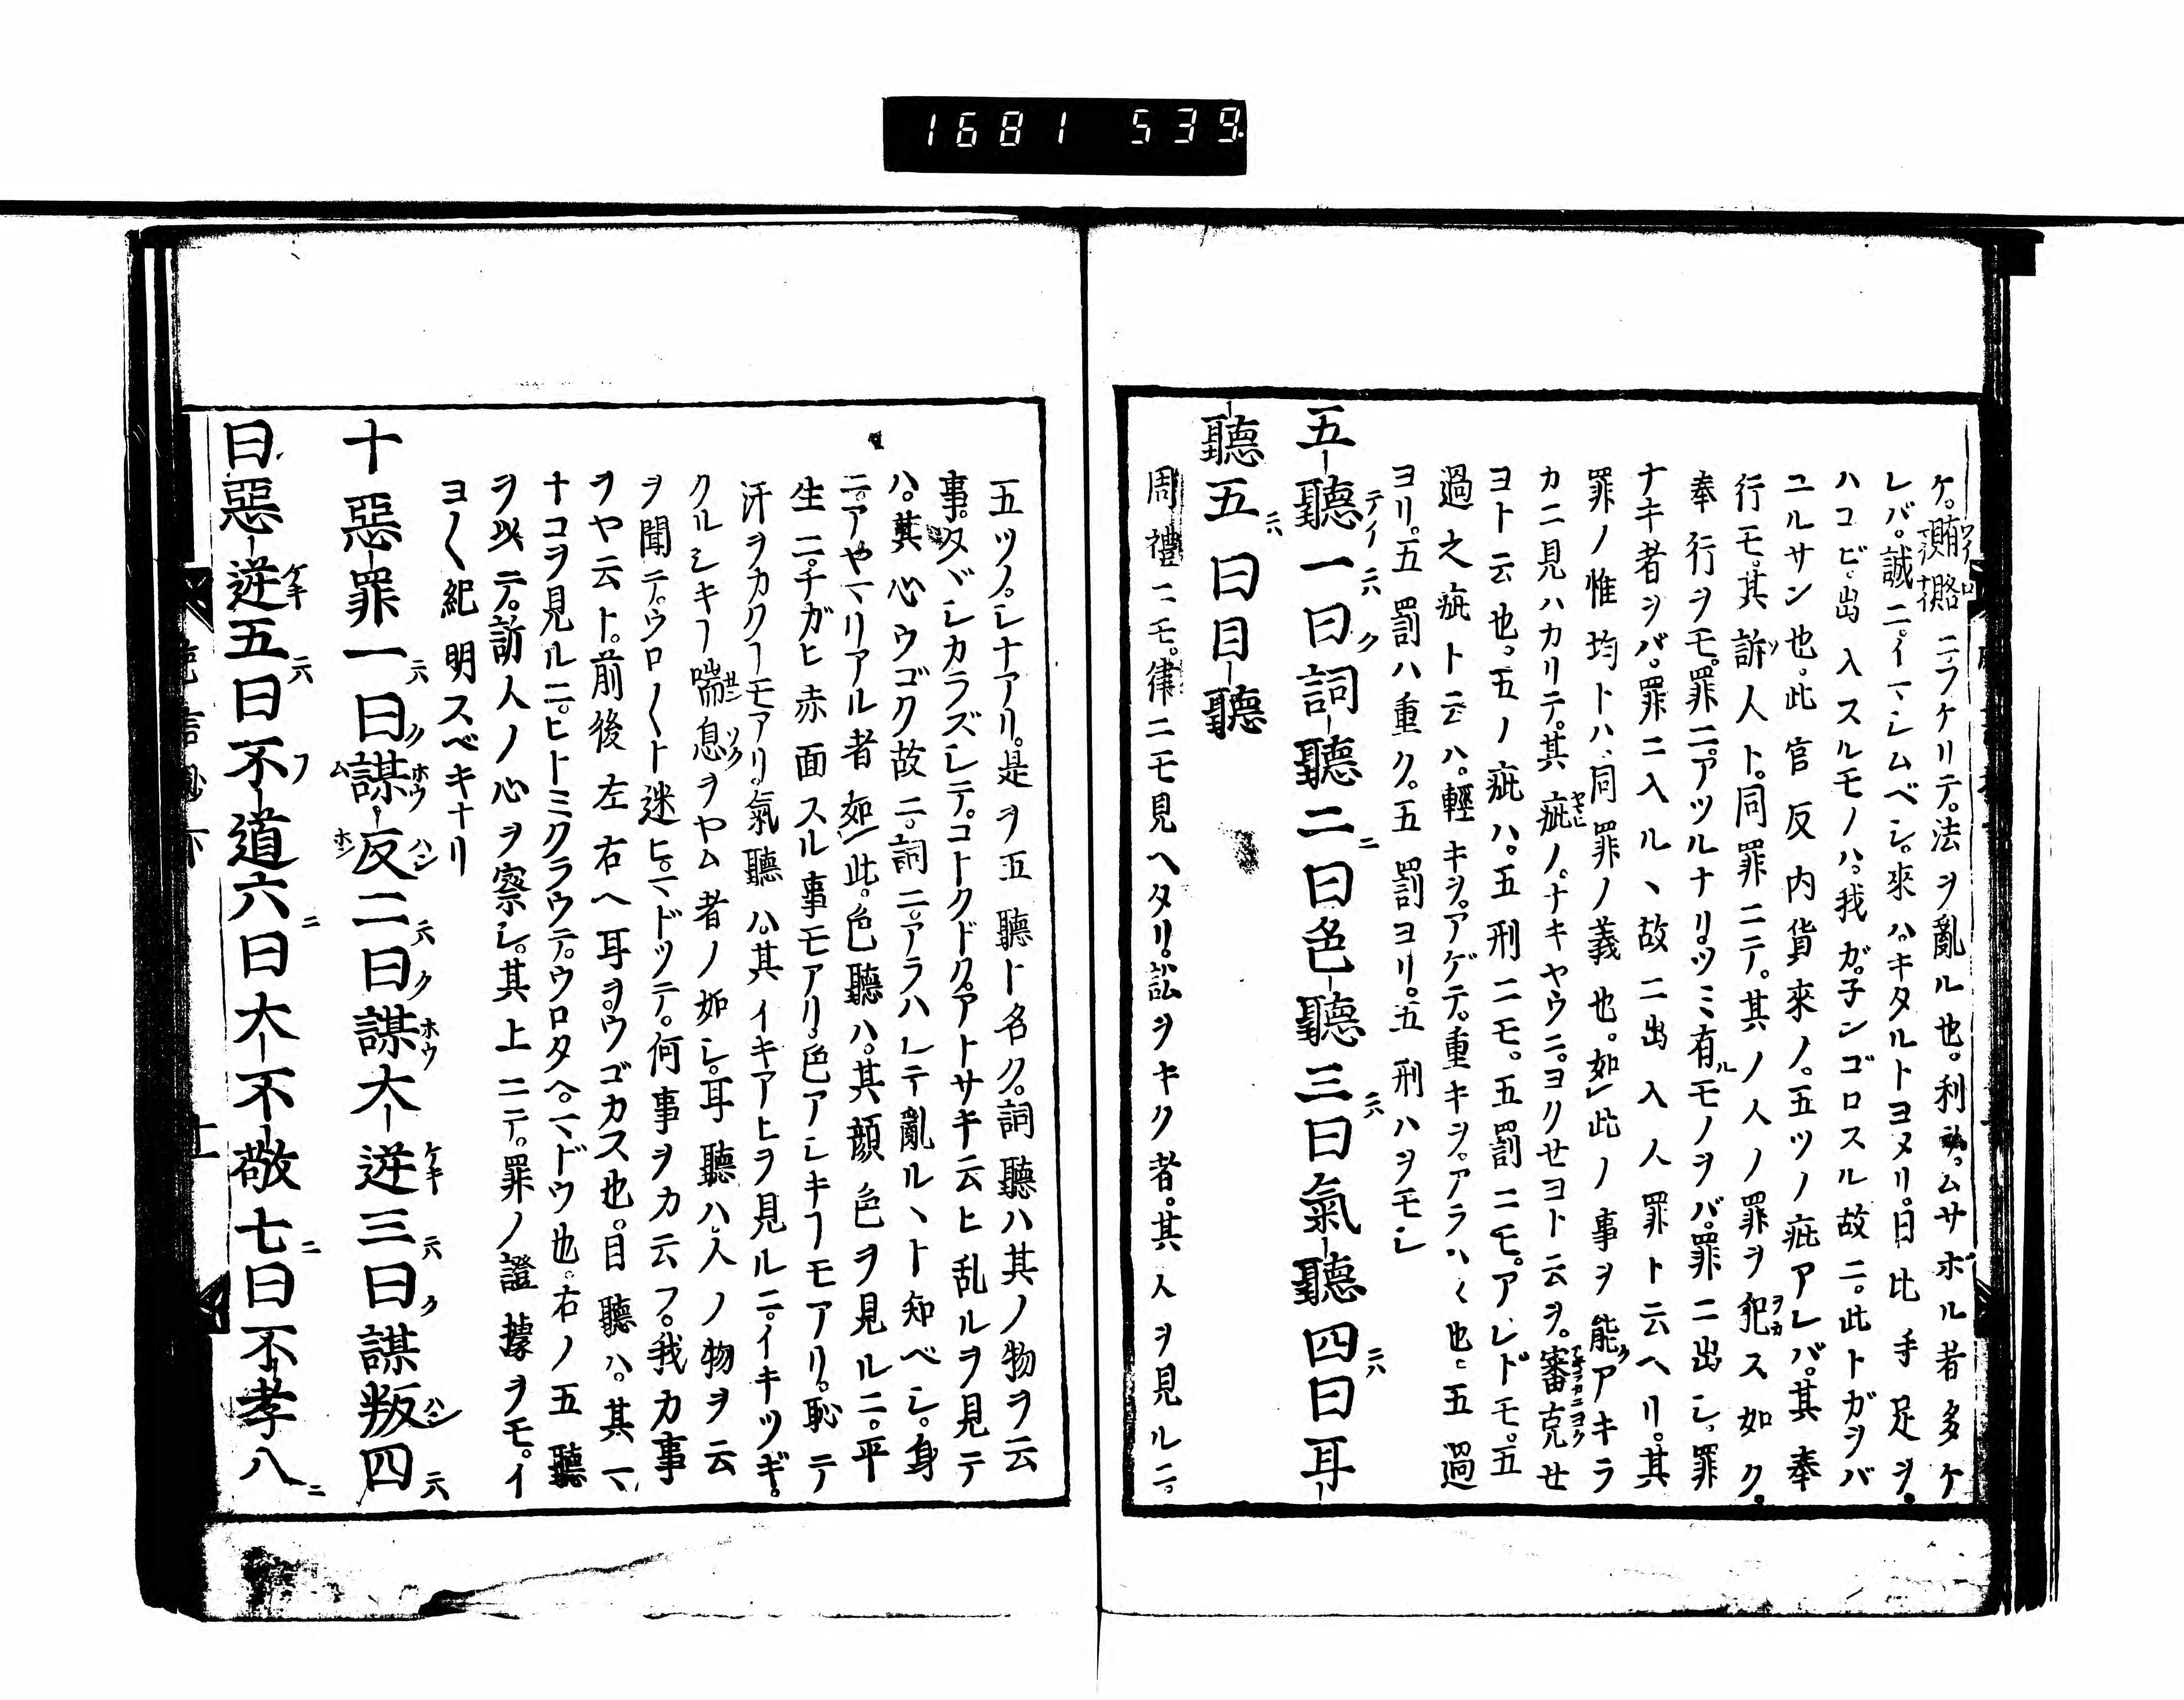 1681 539
ケ。賄賂ニフケリテ。法ヲ亂ル也。利ムサボル者多ケ
レバ。誠ニイマシムベシ。來ハ。キタルトヨメリ。日比手足ヲ。
ハコビ。出入スルモノハ。我ガ。子ンゴロスル故ニ。此トガヲバ
ユルサン也。此官反内貨來ノ。五ツノ疵アレバ。其奉
行モ。其訴人ト。同罪ニテ。其ノ人ノ罪ヲ犯ス如ク。
奉行ヲモ。罪ニ。アツルナリ。ツミ有モノヲバ。罪ニ出シ。罪
ナキ者ヲバ。罪ニ入ル丶故ニ出入人罪ト云ヘリ。其
罪ノ惟均トハ、同罪ノ義也。如此ノ事ヲ能アキラ
カニ見ハカリテ。其疵ノ。ナキヤウニ。ヨクせヨト云ヲ。審克せ
ヨト云也。五ノ疵ハ。五刑ニモ。五罰ニモ。アレドモ。五
過之疵ト云ハ。輕キヲ。アゲテ。重キヲ。アラハ〱也。五過
ヨリ。五罰ハ重ク。五罰ヨリ。五刑ハヲモシ
五聽一曰詞聽二曰色聽三曰氣聽四曰耳
聽五曰目聽
周禮ニモ。律ニモ見ヘタリ。訟ヲキク者。其人ヲ見ルニ。
五ツノ。シナアリ。是ヲ五聽ト名ク。詞聽ハ其ノ物ヲ云
事。タヾシカラズシテ。コトクドク。アトサキ云ヒ乱ルヲ見テ
ハ。其心ウゴク故ニ。詞ニ。アラハレテ亂ル丶ト知ベシ。身
ニ。アヤマリアル者如此。色聽ハ。其顔色ヲ見ルニ。平
生ニ。チガヒ赤面スル事モアリ。色アシキヿモアリ。恥テ
汗ヲカクヿモアリ。氣聽ハ。其イキアヒヲ見ルニ。イキツギ。
クルシキヿ喘息ヲヤム者ノ如シ。耳聽ハ。人ノ物ヲ云
ヲ聞テ。ウロ〱ト迷ヒ。マドツテ。何事ヲカ云フ。我カ事
ヲヤ云ト。前後左右ヘ耳ヲ。ウゴカス也。目聽ハ。其マ
ナコヲ見ルニ。ヒトミクラウテ。ウロタヘ。マドウ也。右ノ五聽
ヲ以テ。訪人ノ心ヲ察シ。其上ニテ。罪ノ證據ヲモ。イ
ヨ〱紀明スベキナリ
十惡罪一曰謀反二曰謀大逆三曰謀叛四
曰惡逆五曰不道六曰大不敬七曰不孝八